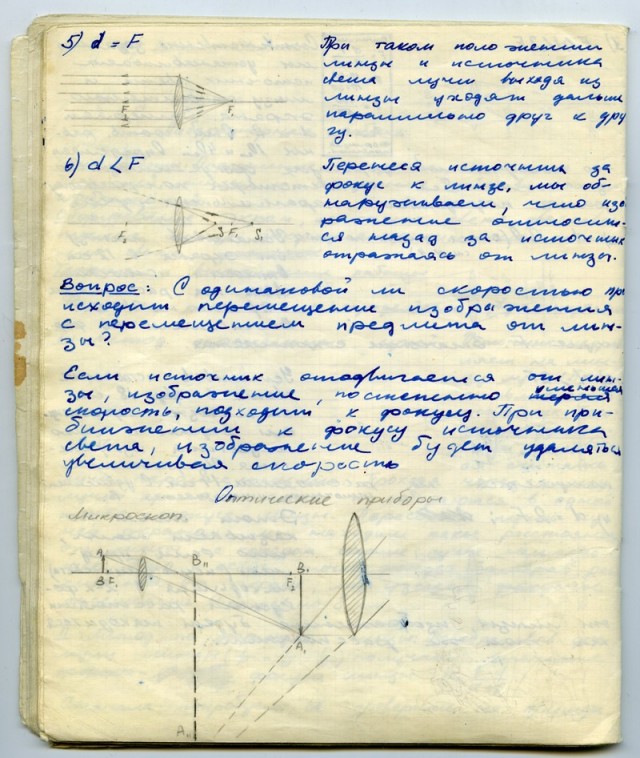 5) d = F
При таком положении
линзы и источника
света лучи выходя из
линзы уходят дальше
параллельно друг к дру
гу.
F₁
6) d < F
Перенеся источник за
фокус к линзе, мы об-
наруживаем, что изо
бражение относит-
ся назад за источник
отражаясь от линзы.
F₂ S F₁ S₁
Вопрос: С одинаковой ли скоростью про
исходит перемещение изображения
с перемещением предмета от лин-
зы?
Если источник отодвигается от лин-
зы, изображение, постепенно уменьшая
скорость, подходит к фокусу. При при-
ближении к фокусу источника
света, изображение будет удаляться
увеличивая скорость
Оптические приборы
Микроскоп.
A
B F₁ B₁₁ F₂ B₁
A₁
A₁₁